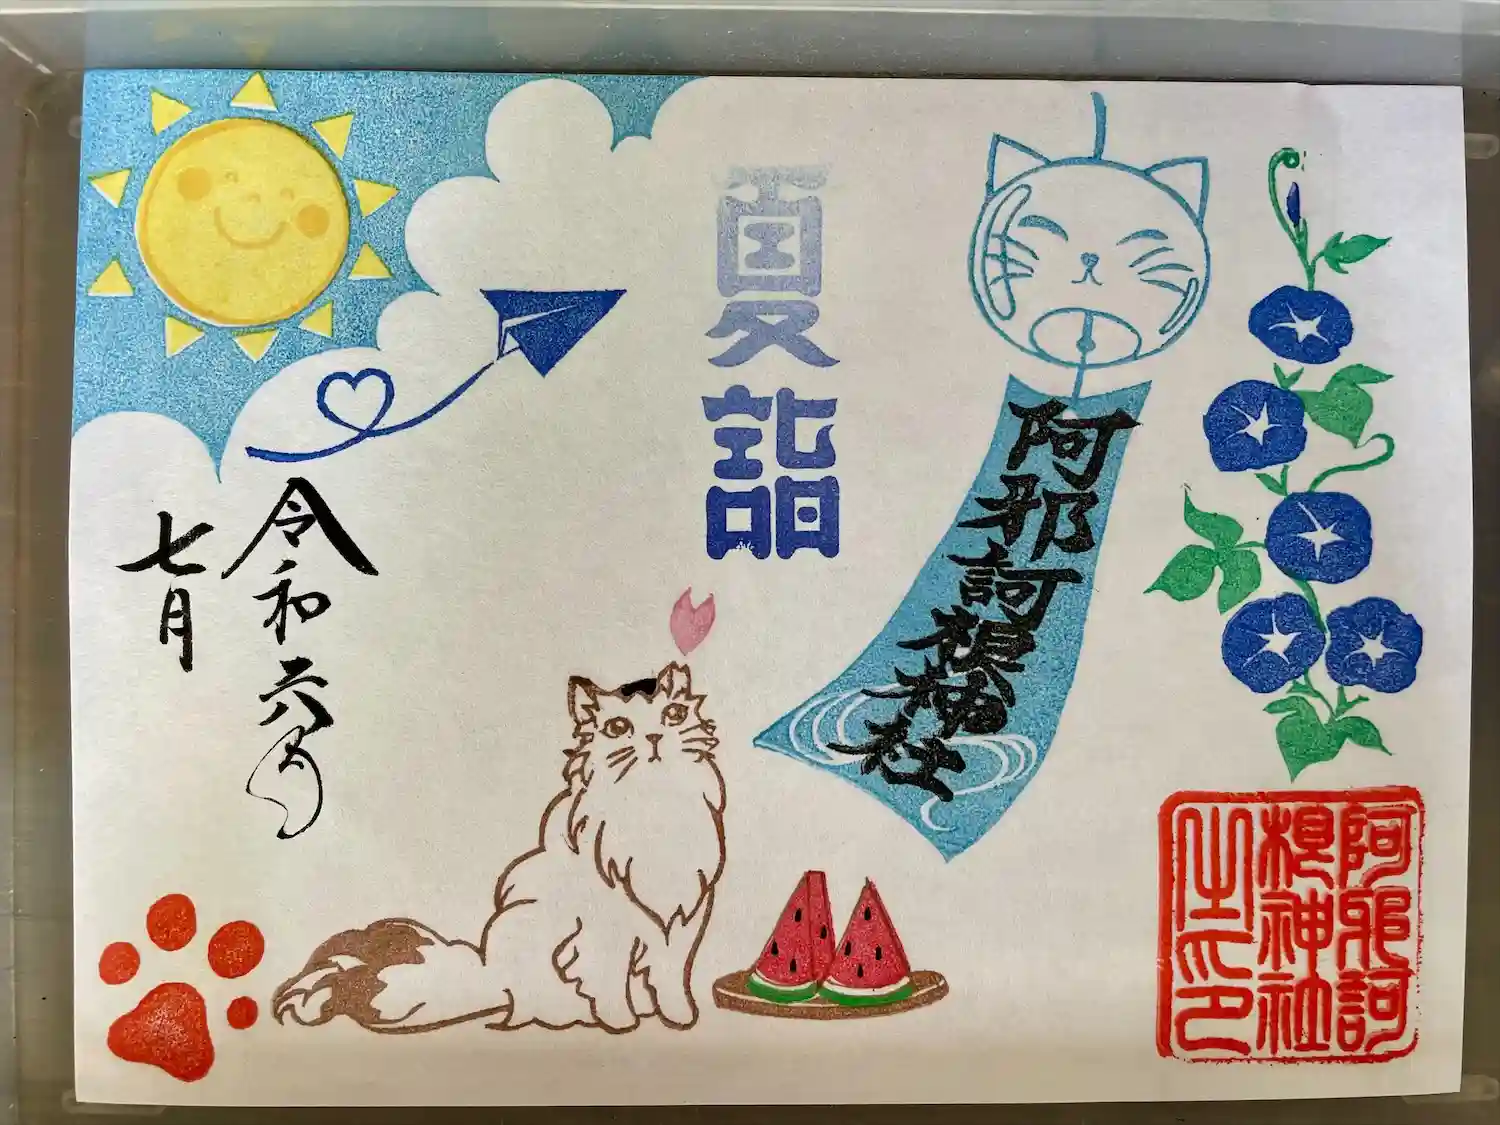 夏詣
阿邪訶根神社
令和六年
七月
阿邪訶
根神社
之印